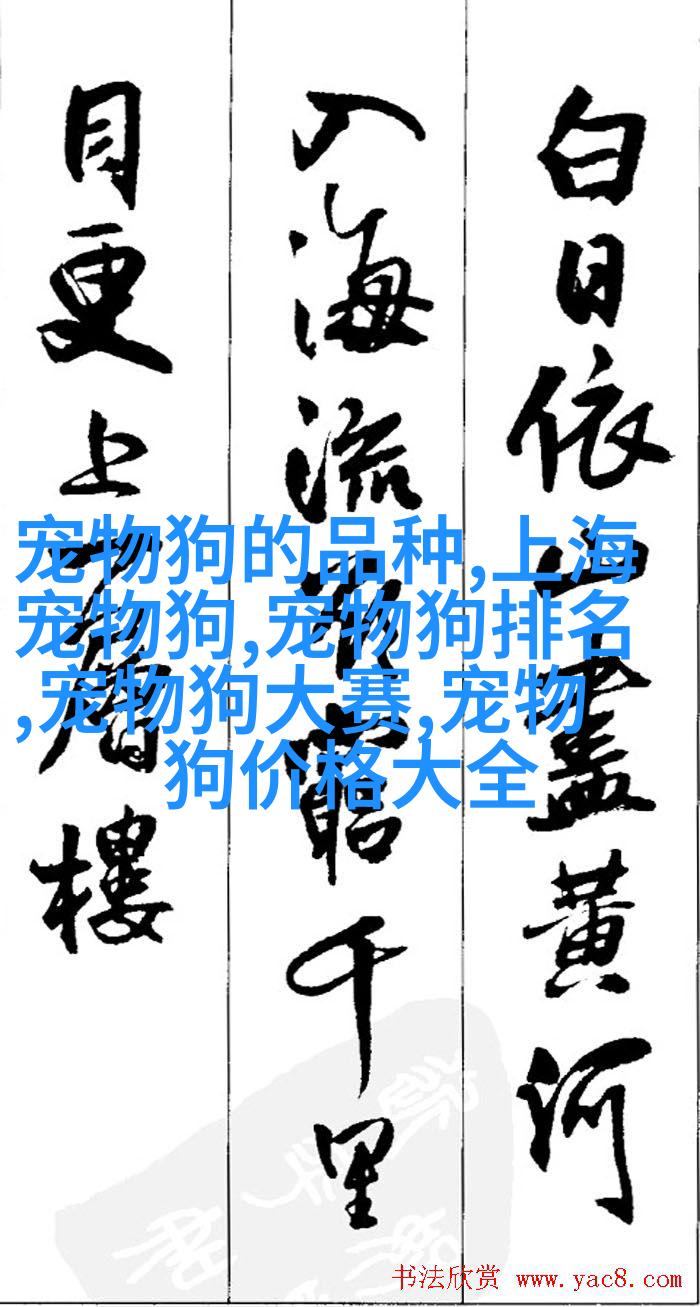 白日依山盡黄河
入海流欲窮千里
目更上一層樓
宠物狗的品种,上海
宠物狗,宠物狗排名
,宠物狗大赛,宠物
狗价格大全
书法欣赏 www.yac8.com